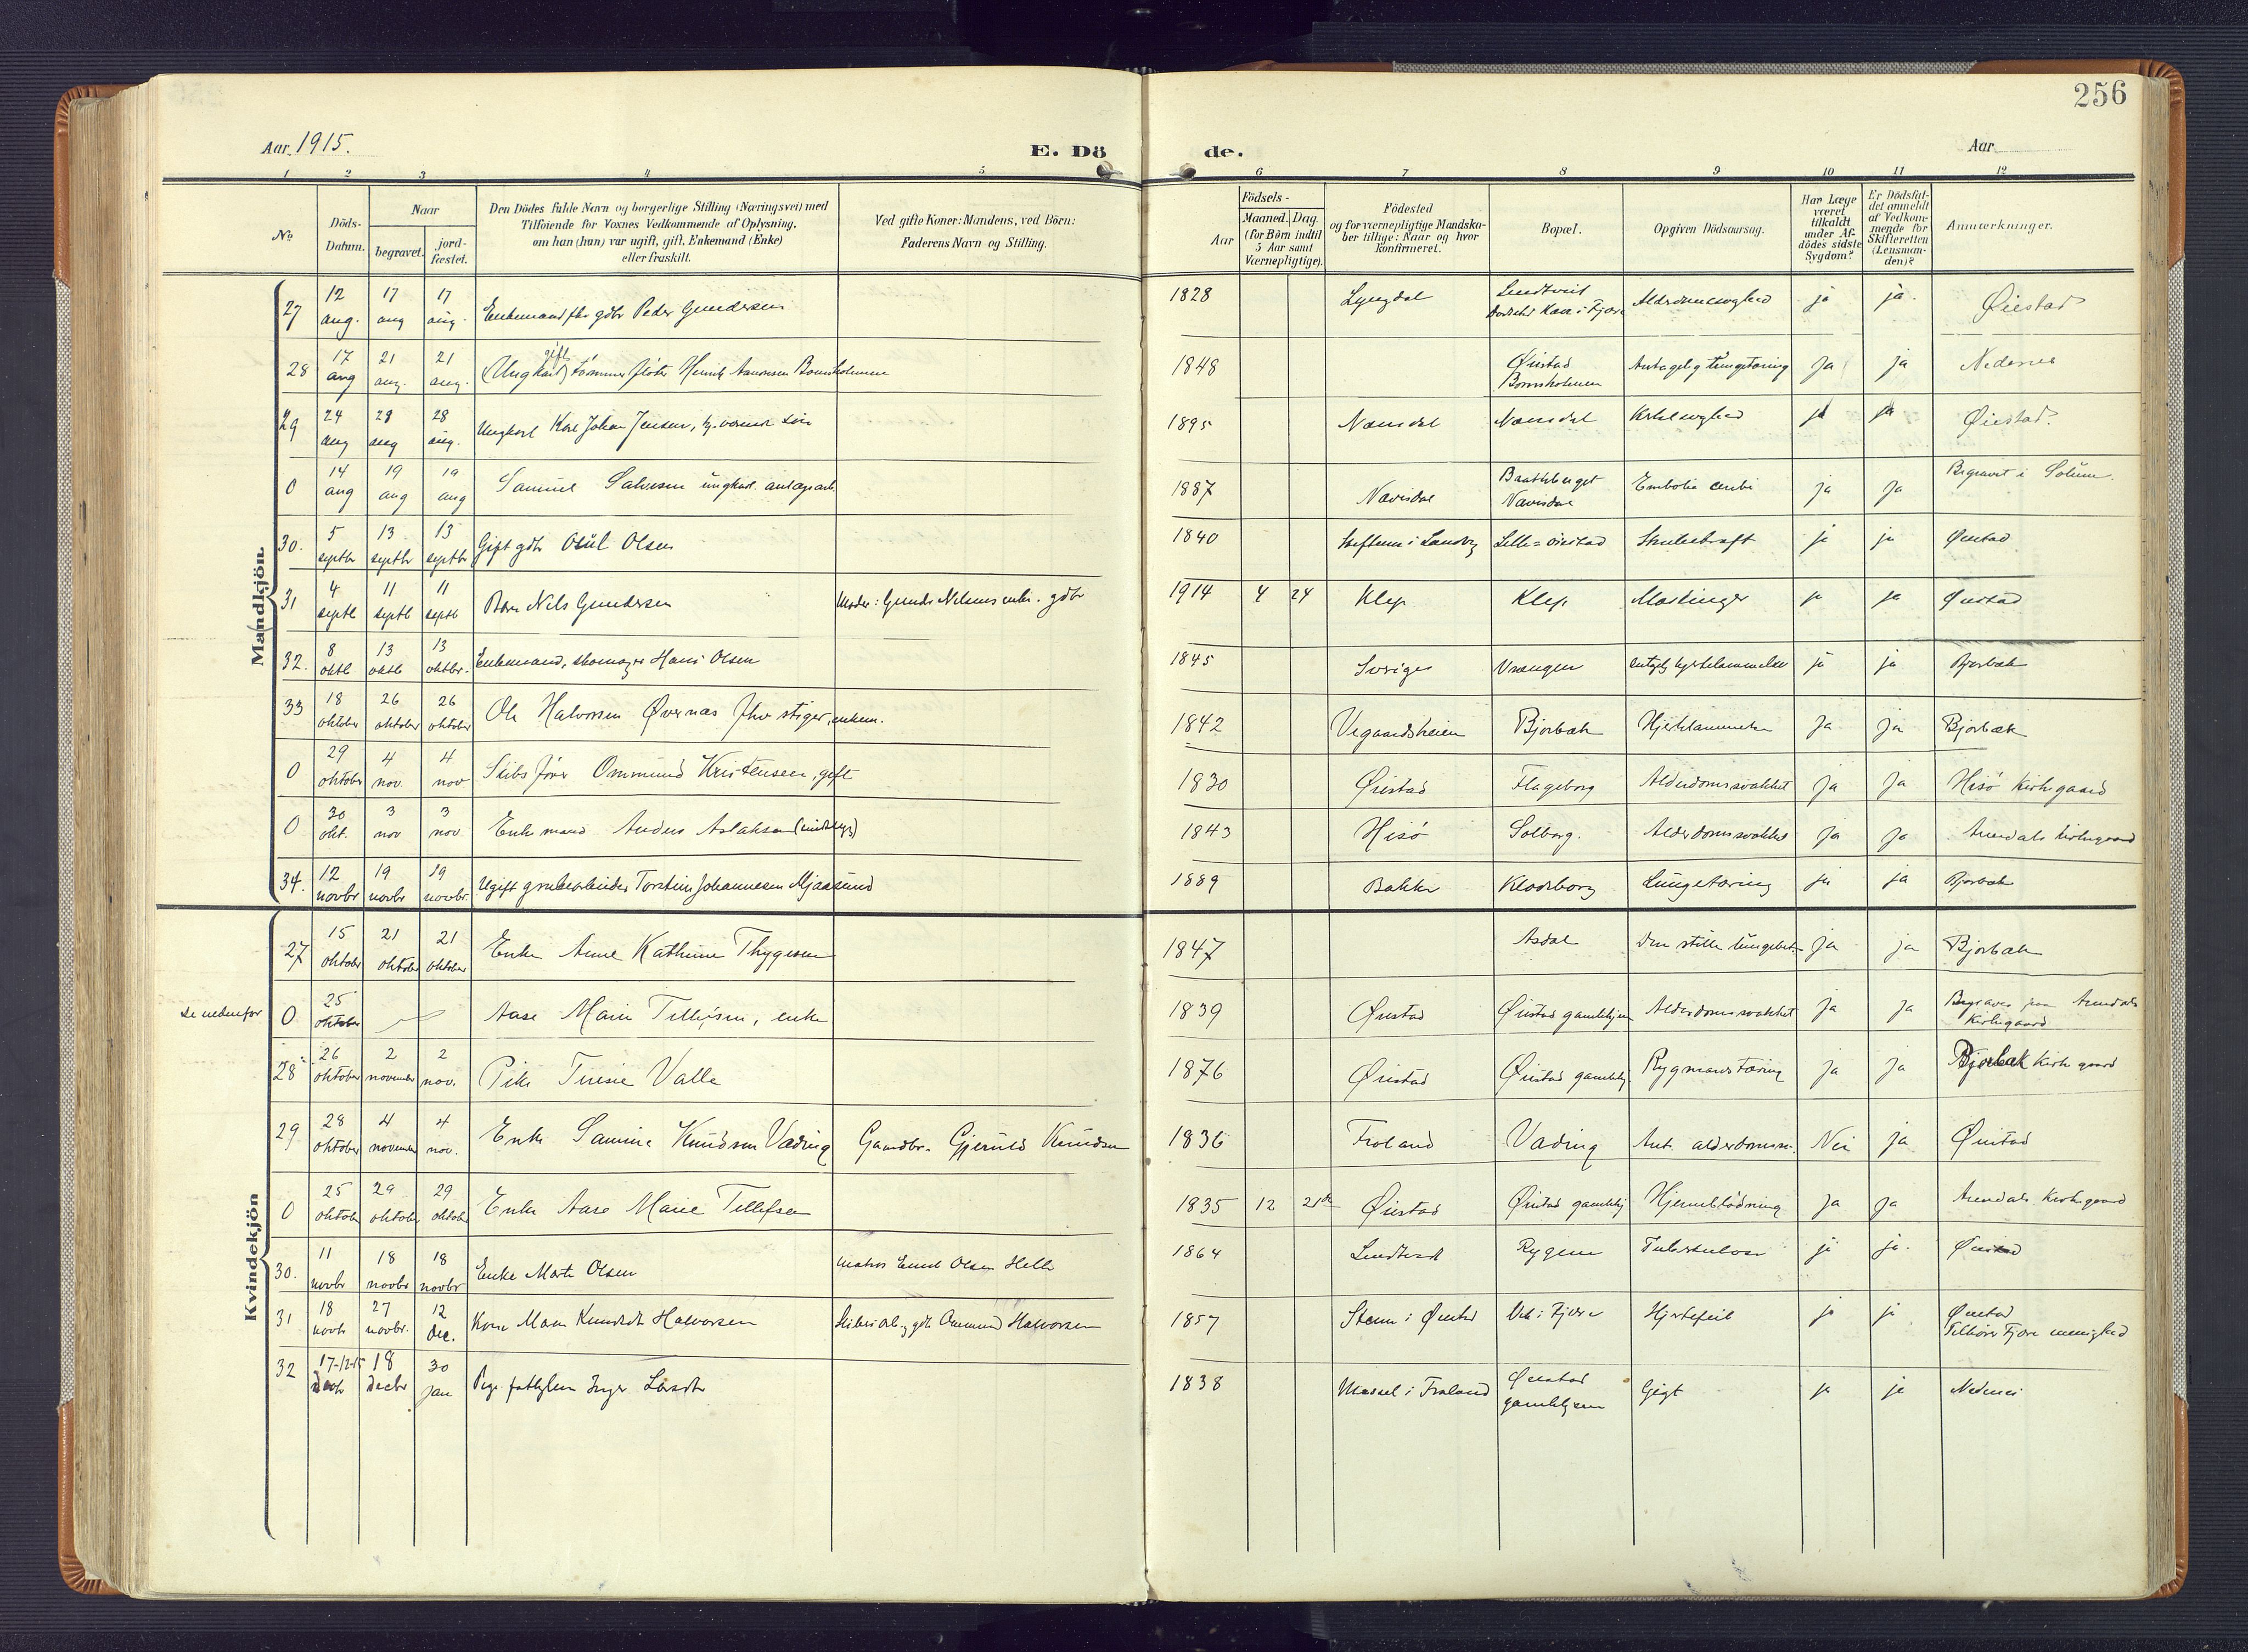 256
Aar 1915.
E. Dö
de.
Aar
1 2 3 4 5 6 7 8 9 10 11 12
No
Döds-Datum.
Naar
begravet.
jord-fæstet.
Den Dödes fulde Navn og borgerlige Stilling (Næringsvei) med
Tilföiende for Voxnes Vedkommende af Oplysning,
om han (hun) var ugift, gift, Enkemand (Enke)
eller fraskilt.
Ved gifte Koner: Mandens, ved Börn:
Faderens Navn og Stilling.
Födsels-
Aar
Maaned. Dag.
(for Börn indtil
5 Aar samt
Værnepligtige).
Födested
og for værnepligtige Mandska-
ber tillige: Naar og hvor
konfirmeret.
Bopæl.
Opgiven Dödsaarsag.
Har Læge
været
tilkaldt
under Af-
dödes sidste
Sygdom?
Er Dödsfal-
det anmeldt
af Vedkom-
mende for
Skifteretten
(Lensman-
den)?
Anmærkninger.
Mandkjön.
27 12 aug. 17 aug 17 aug. Enkemand fhv gdbr Peder Gundersen 1828 Lyngdal Alderdomssvaghed ja ja. Øiestad
28 17 aug 21 aug. 21 aug. (Ungkarl) gift tømmerfløter Henrik Aanonsen Bomsholmen 1848 Øiestad Bomsholmen Antagelig lungetæring ja ja Nedenes
29 24 aug 28 aug 28 aug. Ungkarl Karl Johan Jensen, 1895 ja ja Øiestad.
0 14 aug 19 aug 19 aug Samuel Salvesen ungkarl anlægsarb. 1887 Nævisdal Nævisdal Embolia ja ja Begravet i Solum.
30. 5 septbr 13 septbr 13 septbr Gift gdbr Osul Olsen 1840 Lille=Øiestad ja ja Øiestad
31 4 septb 11 septb 11 septb Barn Nils Gundersen Moder: 1914 4 24 Klep Klep Mæslinger ja ja Øiestad
32. 8 oktb 13 oktb 13 oktbr. Enkemand, skomager Hans Olsen 1845 Sverige Vrængen hjertelammelse ja ja Bjorbæk
33 18 oktober 26 oktober 26 oktober Ole Halvorsen Øvernæs fhv stiger, enkem. 1842 Vegaardsheien Bjorbæk Hjertelammelse ja ja Bjorbæk
0 29 oktober 4 nov. 4 nov Skibsfører Ommund Kristensen, gift 1830 Øiestad Flageborg Alderdomssvakhet ja ja Hisø Kirkegaard
0 30 okt. 3 nov 3 nov. Enkemand Anders Aslaksen 1843 Hisø Solborg. Alderdomssvakhet ja ja Arendals kirkegaard
34. 12 novbr 19 novbr 19 novbr. Ugift grubearbeider Torstein Johannesen Mjaasund 1889 Bakke Klodeborg Lungetæring ja ja Bjorbæk
Kvindekjön
27 15 oktober 21 oktober 21 oktober Enke Anne Kathrine Thygesen 1847 Asdal ja ja Bjorbæk
se nedenfor 0 25 oktober Aase Marie Tellefsen, enke 1839 Øiestad Øiestad gamlehjem Alderdomssvakhet ja ja Begraves paa Arendals Kirkegaard
28 26 oktober 2 november 2 nov. Pike Teresie Valle 1876 Øiestad Øiestad gamlehj. Rygmarvstæring ja ja Bjorbæk Kirkegaard
29 28 oktober 4 november 4 nov. Enke Samine Knudsen Vading Gaardbr. Gjeruld Knudsen 1836 Froland Vading Ant. alderdomssv. Nei ja Øiestad
0 25 oktober 29 oktober 29 oktober Enke Aase Marie Tellefsen 1835 12 21de Øiestad Øiestad gamlehj Hjerneblødning ja ja Arendals Kirkegaard
30. 11 novbr 18 novbr 18 novbr Enke Marte Olsen matros Olsen Helle 1864 Rygene Tuberkulose ja ja. Øiestad
31 18 novb 27 novbr. 12 dec. Karen Maren Knudsdtr Halvorsen gdb Ommund Halvorsen 1857 i Øiestad Vik i Fjære Hjertefeil ja ja Øiestad Tilhører Fjære menighed
32 17-12-15 18 decbr 30 jan Pige, fattiglem Inger Larsdtr 1838 Messel i Froland Øiestad gamlehjem Gigt ja ja Nedenes